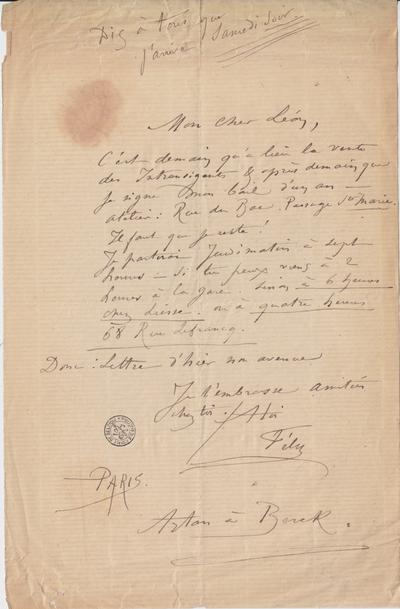 Dis à tous que
j'arrive Samedi soir
Mon cher Léon,
C'est demain qu'a lieu la vente
des Intransigants & après demain que
je signe mon bail d'un an —
atelier : Rue du Bac. Passage Ste Marie.
Il faut que je reste !
Je partirai Jeudi matin à sept
heures — si tu peux viens à 2
heures à la gare. Sinon à 6 heures
chez Liesse. ou à quatre heures
68 Rue Lefrancq.
Donc : Lettre d'hier non avenue
Je t'embrasse amitiés
chez toi. À toi
Fély
PARIS.
Artan à Berck.